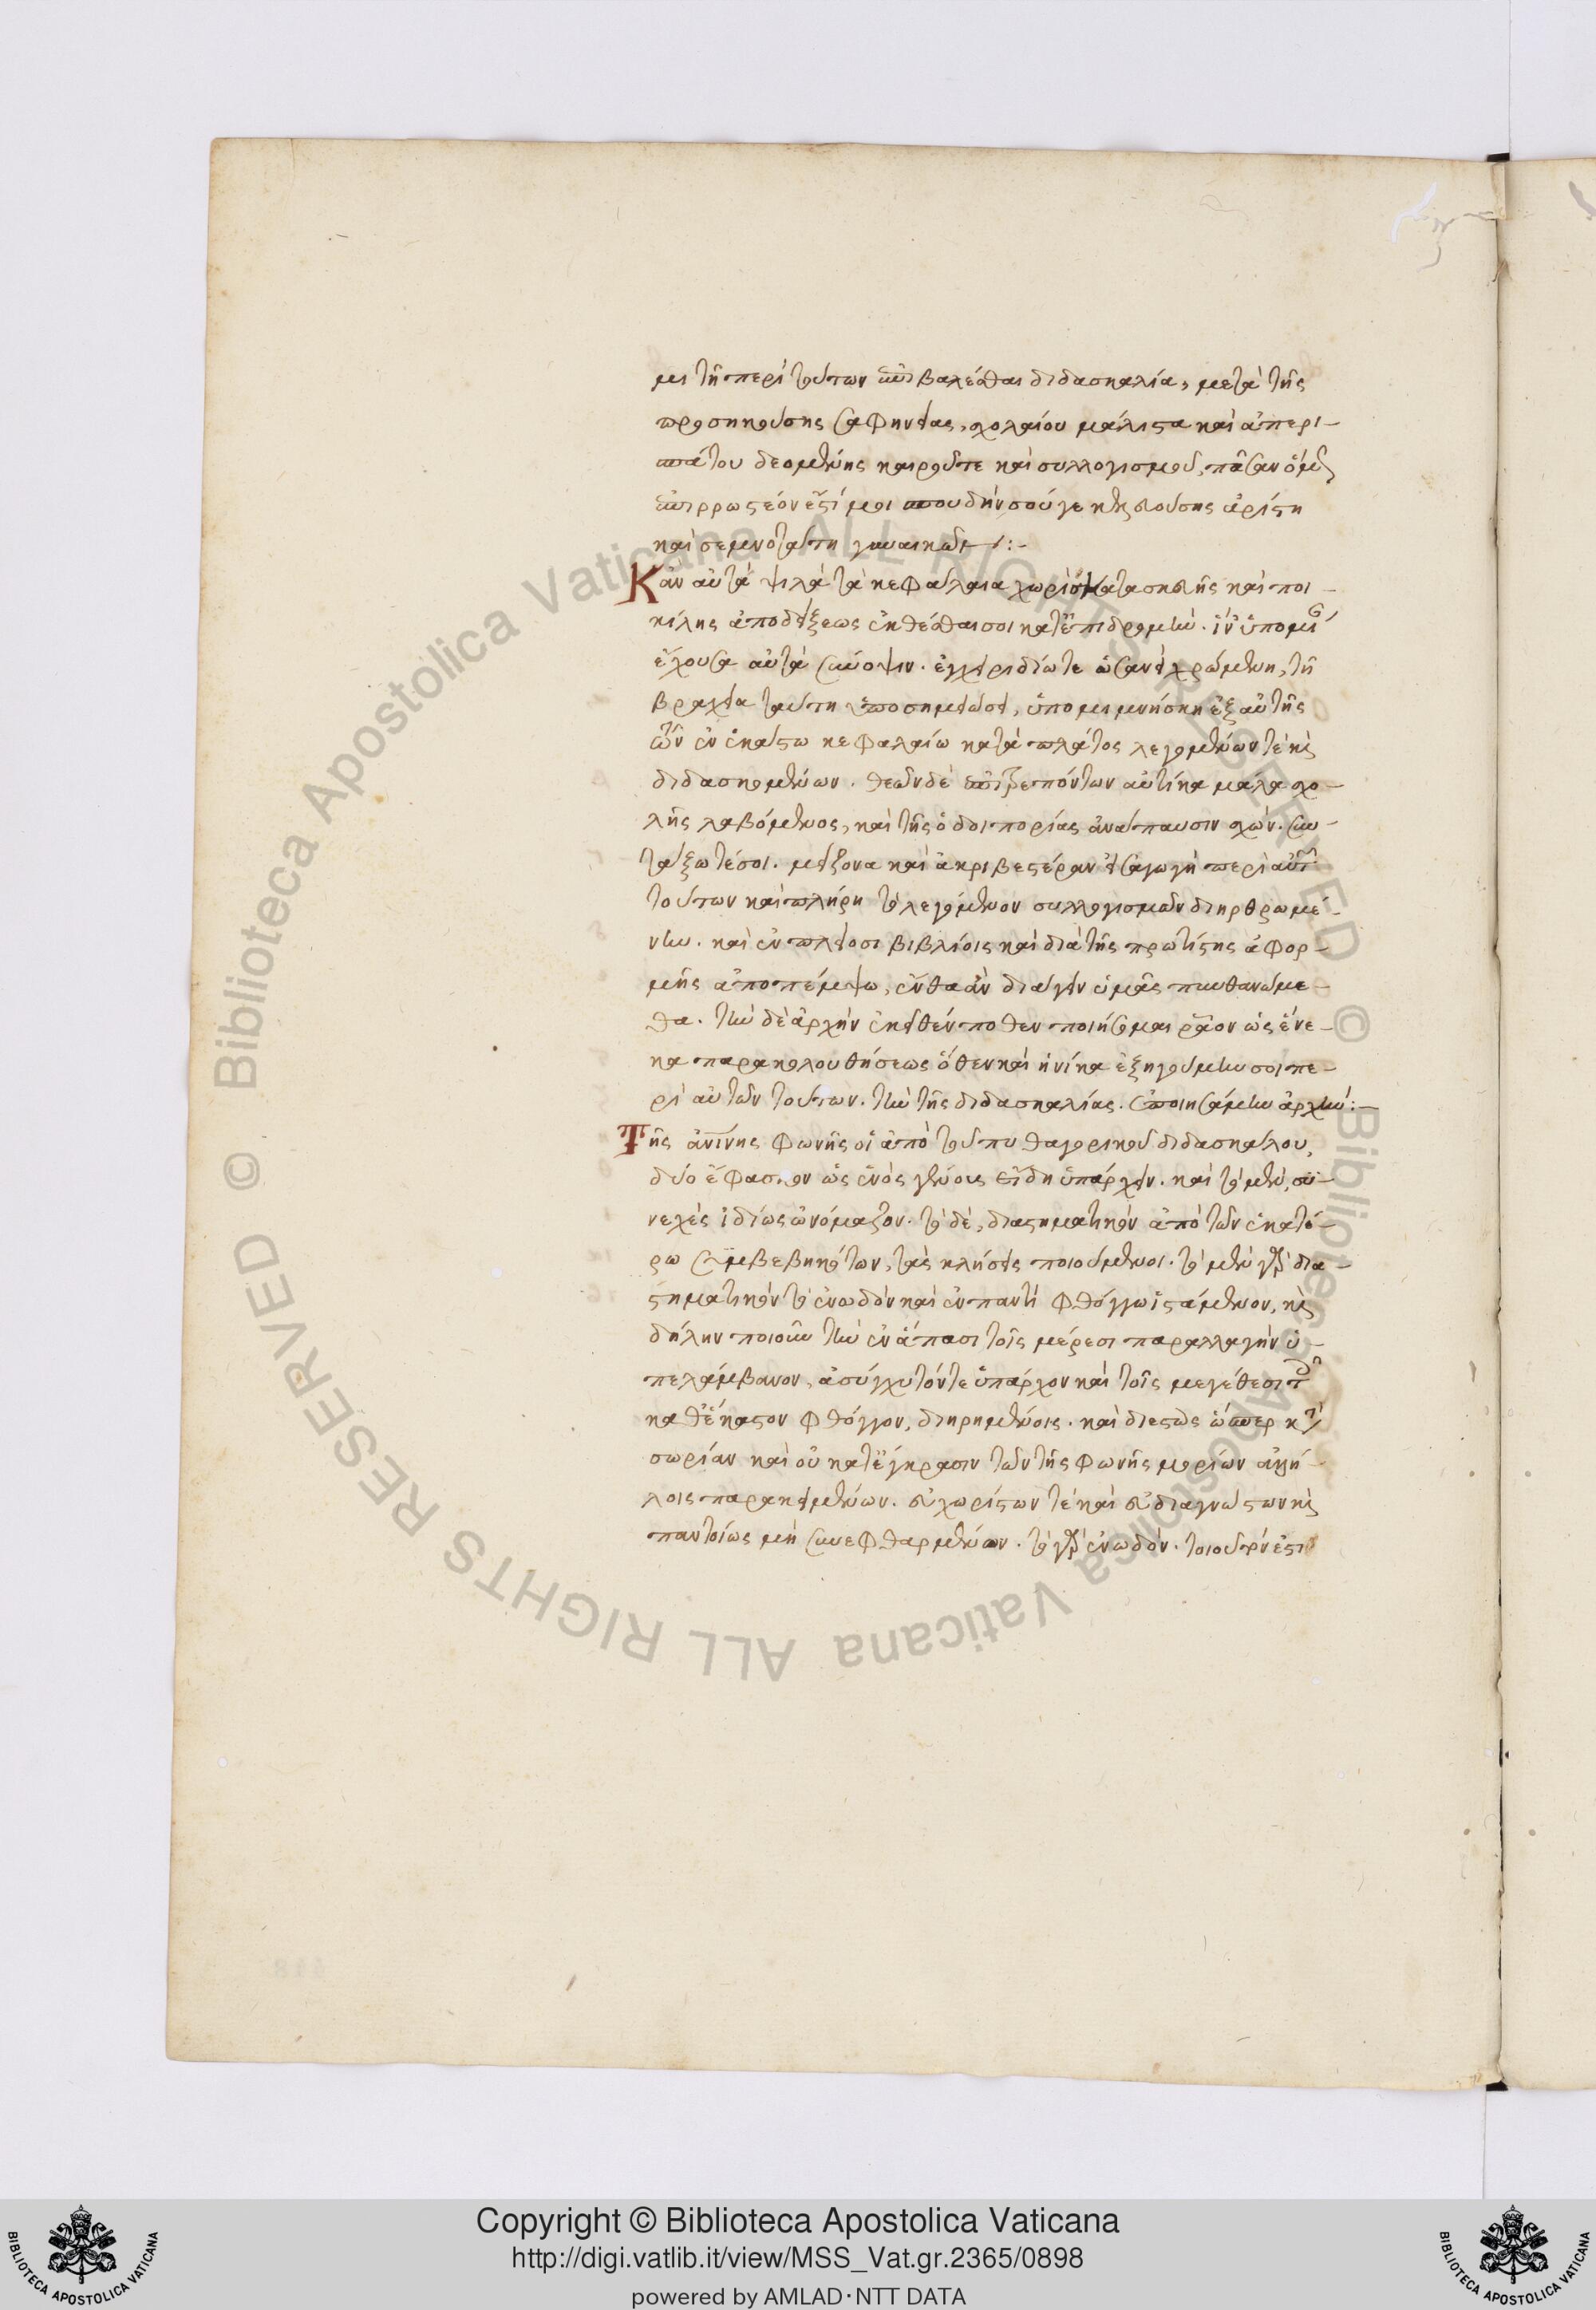 μι τῆ περὶ τούτων ἐπιβαλέσθαι διδασκαλία, μετὰ τῆς
προσηκούσης σαφηνείας, σχολαίου μάλιστα καὶ ἀπερι-
σπάτου δεομένης καιροῦ τε καὶ συλλογισμοῦ, πᾶσαν ὅμως
ἐπιρρωστέον ἐστί μοι σπουδὴν σού γε κελευούσης ἀρίστη
καὶ σεμνοτάτη γυναικῶν:-
Κἂν αὐτὰ ψιλὰ τὰ κεφάλαια χωρὶς κατασκευῆς καὶ ποι-
κίλης ἀποδείξεως ἐκθέσθαι σοι κατ' ἐπιδρομήν. ἵν' ὑπὸ μί
ἔχουσα αὐτὰ σύνοψιν. ἐγχειριδίω τε ὡσανεὶ χρωμένη, τῆ
βραχεία ταύτη ὑποσημειώσει, ὑπομιμνήσκη ἐξ αὐτῆς
ὧν ἐν ἑκάστω κεφαλαίω κατὰ πλάτος λεγομένων τὲ καὶ
διδασκομένων. θεῶν δὲ ἐπιτρεπόντων αὐτίκα μάλα σχο-
λῆς λαβόμενος, καὶ τῆς ὁδοιπορίας ἀνάπαυσιν σχών. συν-
τάξω τέ σοι. μείζονα καὶ ἀκριβεστέραν εἰσαγωγὴ περὶ αὐτῶν
τούτων καὶ πλήρη τὸ λεγόμενον συλλογισμῶν διηρθρωμέ-
νην. καὶ ἐν πλείοσι βιβλίοις καὶ διὰ τῆς πρωτίστης ἀφορ-
μῆς ἀποπέμψω, ἔνθα ἂν διάγειν ὑμᾶς πυνθανώμε-
θα. τὴν δὲ ἀρχὴν ἐκεῖθέν ποθεν ποιήσομαι ρᾶον ὡς ἕνε-
κα παρακολουθήσεως ὅθεν καὶ ἡνίκα ἐξηγούμην σοι πε-
ρὶ αὐτῶν τούτων. τὴν τῆς διδασκαλίας. ἐποιησάμην ἀρχήν:-
Τῆς ἀνίνης φωνῆς οἱ ἀπὸ τοῦ πυθαγορικοῦ διδασκάλου,
δύο ἔφασκον ὡς ἑνὸς γένους εἴδη ὑπάρχειν. καὶ τὸ μὲν, συ-
νεχὲς ἰδίως ὠνόμαζον. τὸ δὲ, διαστηματικὸν ἀπὸ τῶν ἑκατέ-
ρω συμβεβηκότων, τὰς κλήσεις ποιούμενοι. τὸ μὲν γὰρ δια-
στηματικὸν τὸ ἐνωδὸν καὶ ἐν παντὶ φθόγγω ἱστάμενον, καὶ
δήλην ποιοῦν τὴν ἐν ἅπασι τοῖς μέρεσι παραλλαγὴν ὑ-
πελάμβανον, ἀσύγχυτόν τε ὑπάρχον καὶ τοῖς μεγέθεσι τοῖς
καθ' ἕκαστον φθόγγον, διηρημένοις. καὶ διεστὼς ὥσπερ κατὰ
σωρίαν καὶ οὐ κατ' ἔγκρασιν τῶν τῆς φωνῆς μορίων ἀλλή-
λοις παρακειμένων. εὐχωρίστων τὲ καὶ εὐδιαγνώστων καὶ
παντοίως μὴ συνεφθαρμένων. τὸ γὰρ ἐνωδόν. τοιοῦτόν ἐστι
Copyright © Biblioteca Apostolica Vaticana
http://digi.vatlib.it/view/MSS_Vat.gr.2365/0898
powered by AMLAD·NTT DATA
BIBLIOTECA APOSTOLICA VATICANA
BIBLIOTECA APOSTOLICA VATICANA
© Biblioteca Apostolica Vaticana ALL RIGHTS RESERVED © Biblioteca Apostolica Vaticana ALL RIGHTS RESERVED